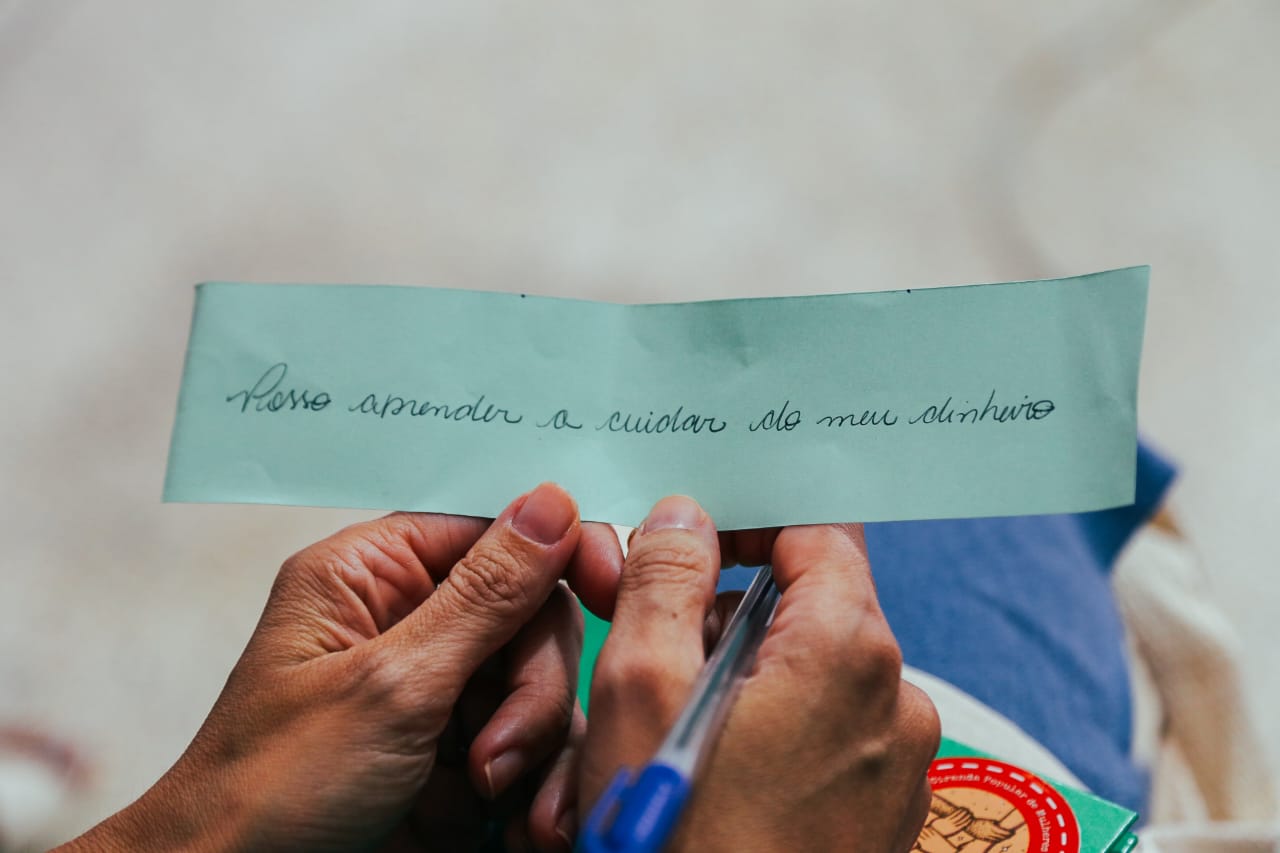 Posso aprender a cuidar do meu dinheiro
Ciranda Popular de Mulheres